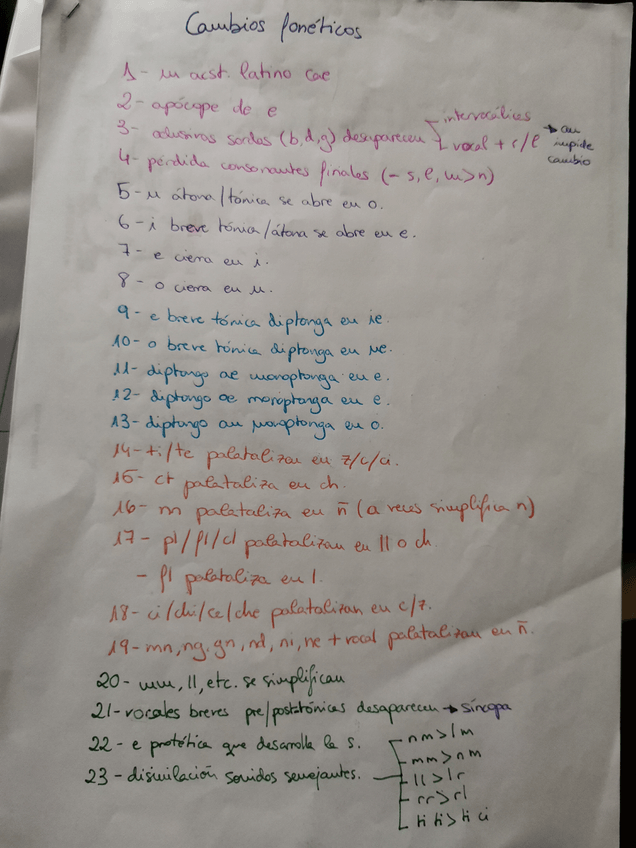 Cambios fonéticos
1- m acst. latino cae
2- apócope de e
3- oclusivas sordas (b,d,g) desaparecen intervocálicas
vocal + r/l → au impide cambio
4- pérdida consonantes finales (- s, l, m>n)
5- u átona/tónica se abre en o.
6- i breve tónica/átona se abre en e.
7- e cierra en i.
8- o cierra en u.
9- e breve tónica diptonga en ie.
10- o breve tónica diptonga en ue.
11- diptongo ae monoptonga en e.
12- diptongo oe monoptonga en e.
13- diptongo au monoptonga en o.
14- ti/te palatalizan en z/c/ci.
15- ct palataliza en ch.
16- nn palataliza en ñ (a veces simplifica n)
17- pl/fl/cl palatalizan en ll o ch.
- fl palataliza en l.
18- ci/chi/ce/che palatalizan en c/z.
19- mn, ng, gn, nd, ni, ne + vocal palatalizan en ñ.
20- mm, ll, etc. se simplifican
21- vocales breves pre/postónicas desaparecen → síncopa
22- e protética que desarrolla la s.
23- disimilación sonidos semejantes.
nm>lm
mm>nm
ll>lr
rr>rl
ti ti>ti ci